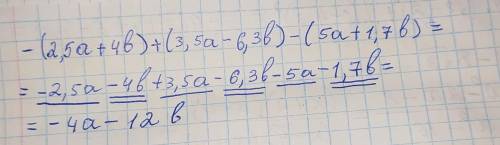 -(2,5a+4b)+(3,5a-6,3b)-(5a+1,7b)=
=-2,5a-4b+3,5a-6,3b-5a-1,7b=
=-4a-12b